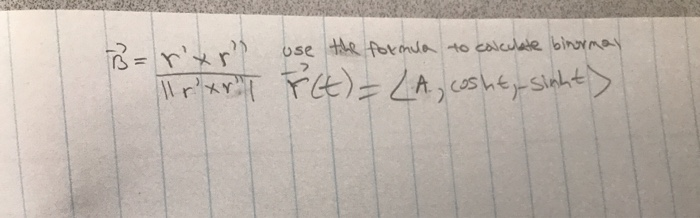 B⃗ = r' × r'' / ||r' × r''|| use the formula to calculate binormal
r⃗(t) = ⟨A, cosht, -sinht⟩